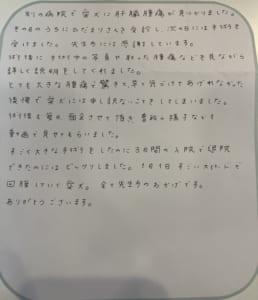 別の病院で愛犬に肝臓腫瘍が見つかりました。
その日のうちにひだまりさんを受診し、次の日には手術を
受けました。先生方には感謝しています。
術後に手術中の写真や取った腫瘍などを見ながら
詳しく説明をしてくれました。
とても大きな腫瘍で驚き、早く気づいてあげれなかった
後悔で愛犬には申し訳ないことをしてしまいました。
術後も毎日面会させて頂き、普段の様子なども
動画で見せてもらいました。
すごく大きな手術をしたのに3日間の入院で退院
できたのにはビックリしました。1日1日すごいスピードで
回復していく愛犬。全て先生方のおかげです。
ありがとうございます。